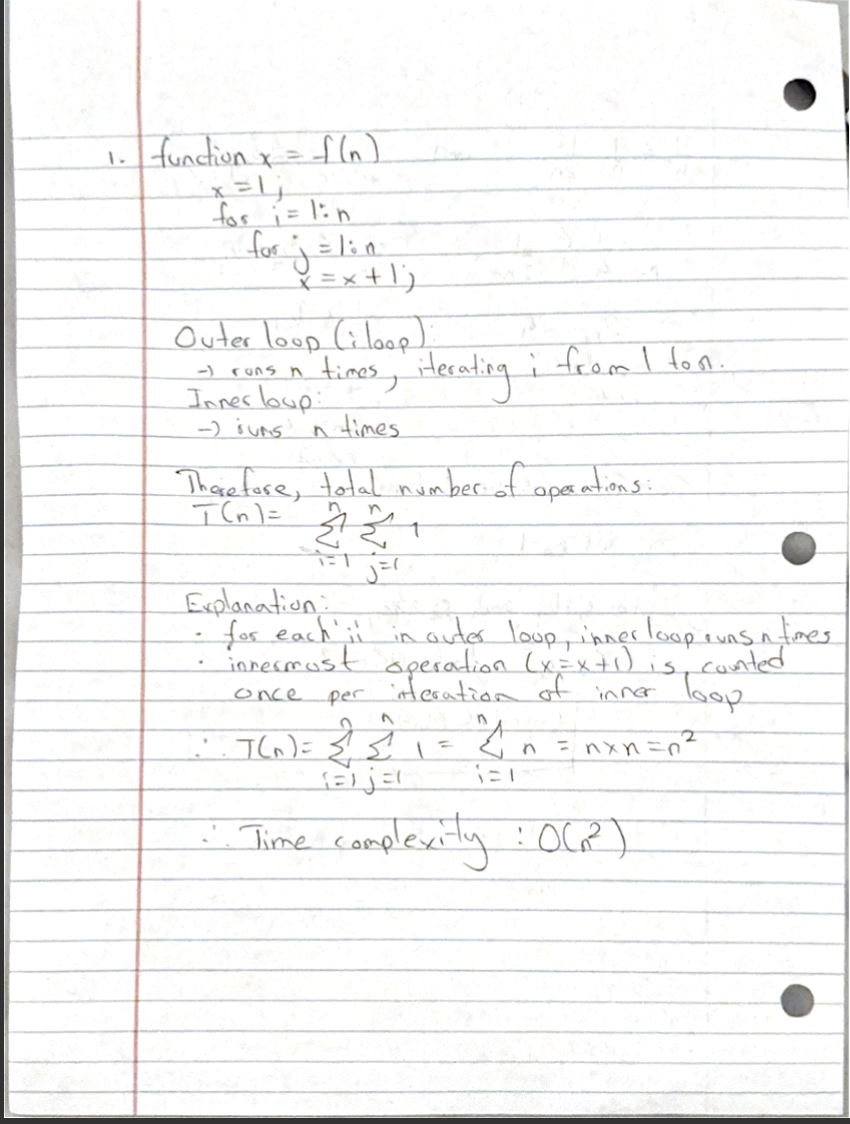 1. function x = f(n)
x = 1;
for i = 1:n
for j = 1:n
x = x + 1;
Outer loop (i loop):
→ runs n times, iterating i from 1 to n.
Inner loop:
→ runs n times
Therefore, total number of operations:
T(n) = n∑i=1 n∑j=1 1
Explanation:
· for each 'i' in outer loop, inner loop runs n times
· innermost operation (x=x+1) is counted
once per iteration of inner loop
∴ T(n) = n∑i=1 n∑j=1 1 = n∑i=1 n = n×n = n²
∴ Time complexity : O(n²)